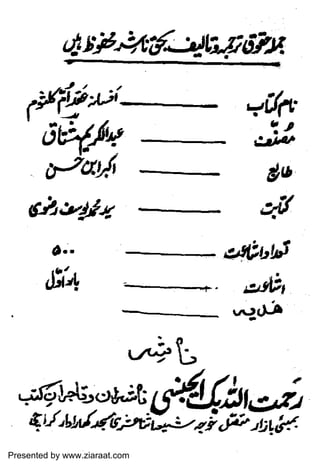 جملہ حقوق ترجمہ و تالیف بحق ناشر محفوظ ہیں
نام کتاب ــــــــ افسانہ عقد اُمِّ کلثوم
مصنف ــــــــ عبدالکریم مشتاق
طابع ــــــــ اکبر ابن حسن
کتابت ــــــــ سید محمد یوسف رضوی
تعداد اشاعت ــــــــ ۵۰۰
اشاعت ــــــــ بار اوّل
ھدیہ ــــــــ
ناشر
رحمت اللہ بک ایجنسی ناشران و تاجران کتب
بمبئی بازار متصل خوجہ شیعہ اثنا عشری مسجد کھارادر کراچی
Presented by www.ziaraat.com